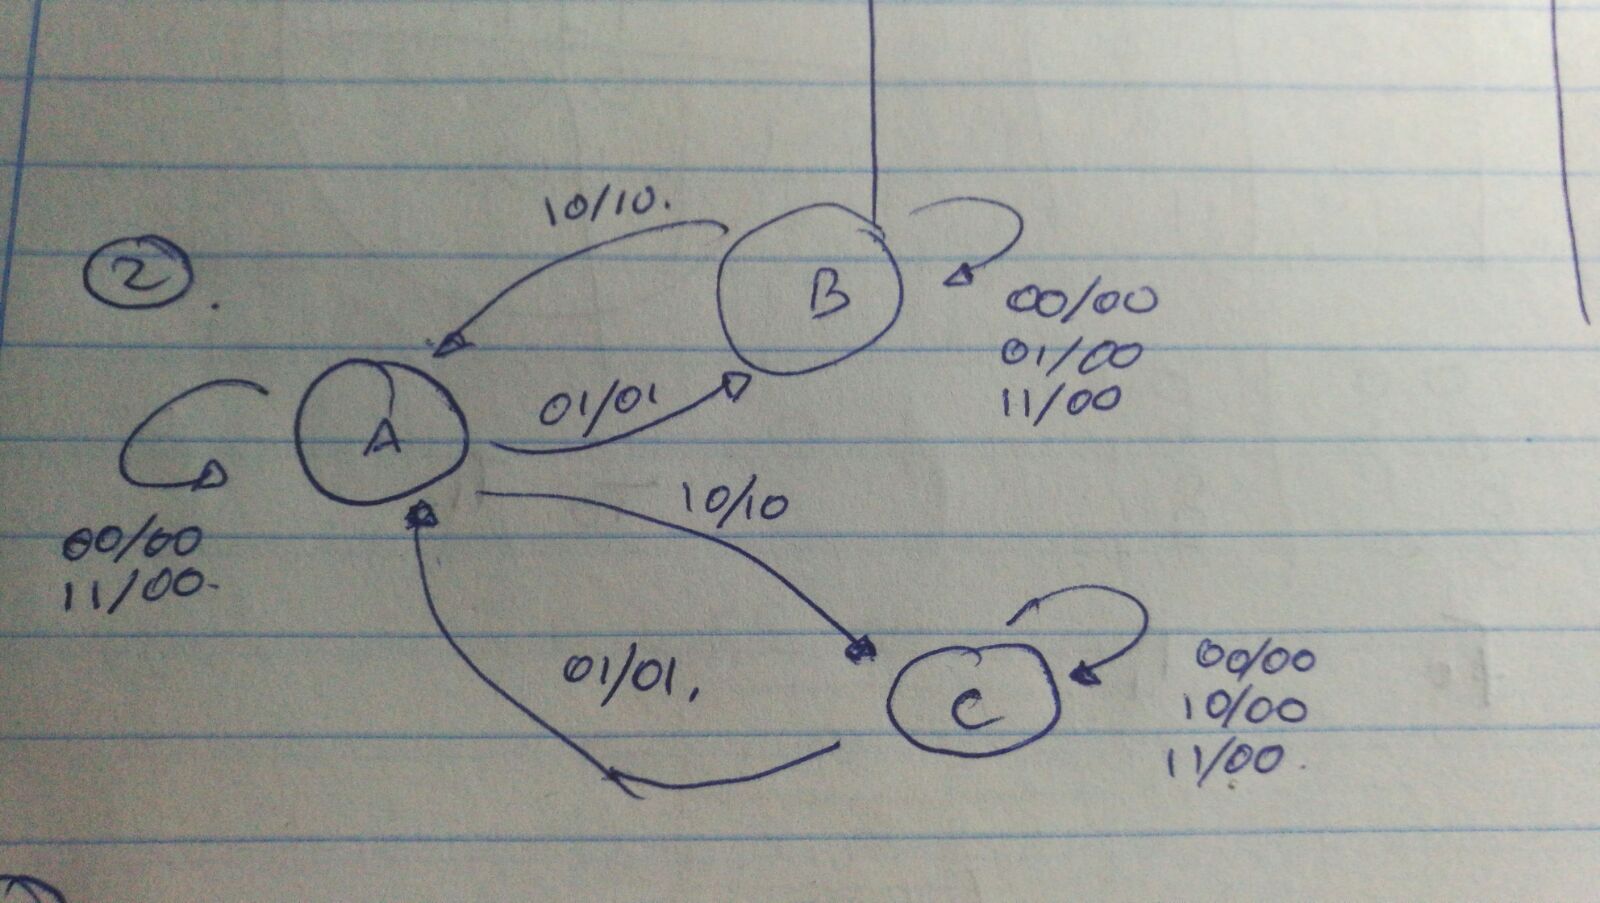 2.
10/10.
B
00/00
01/00
11/00
01/01
A
00/00
11/00.
10/10
01/01,
C
00/00
10/00
11/00.